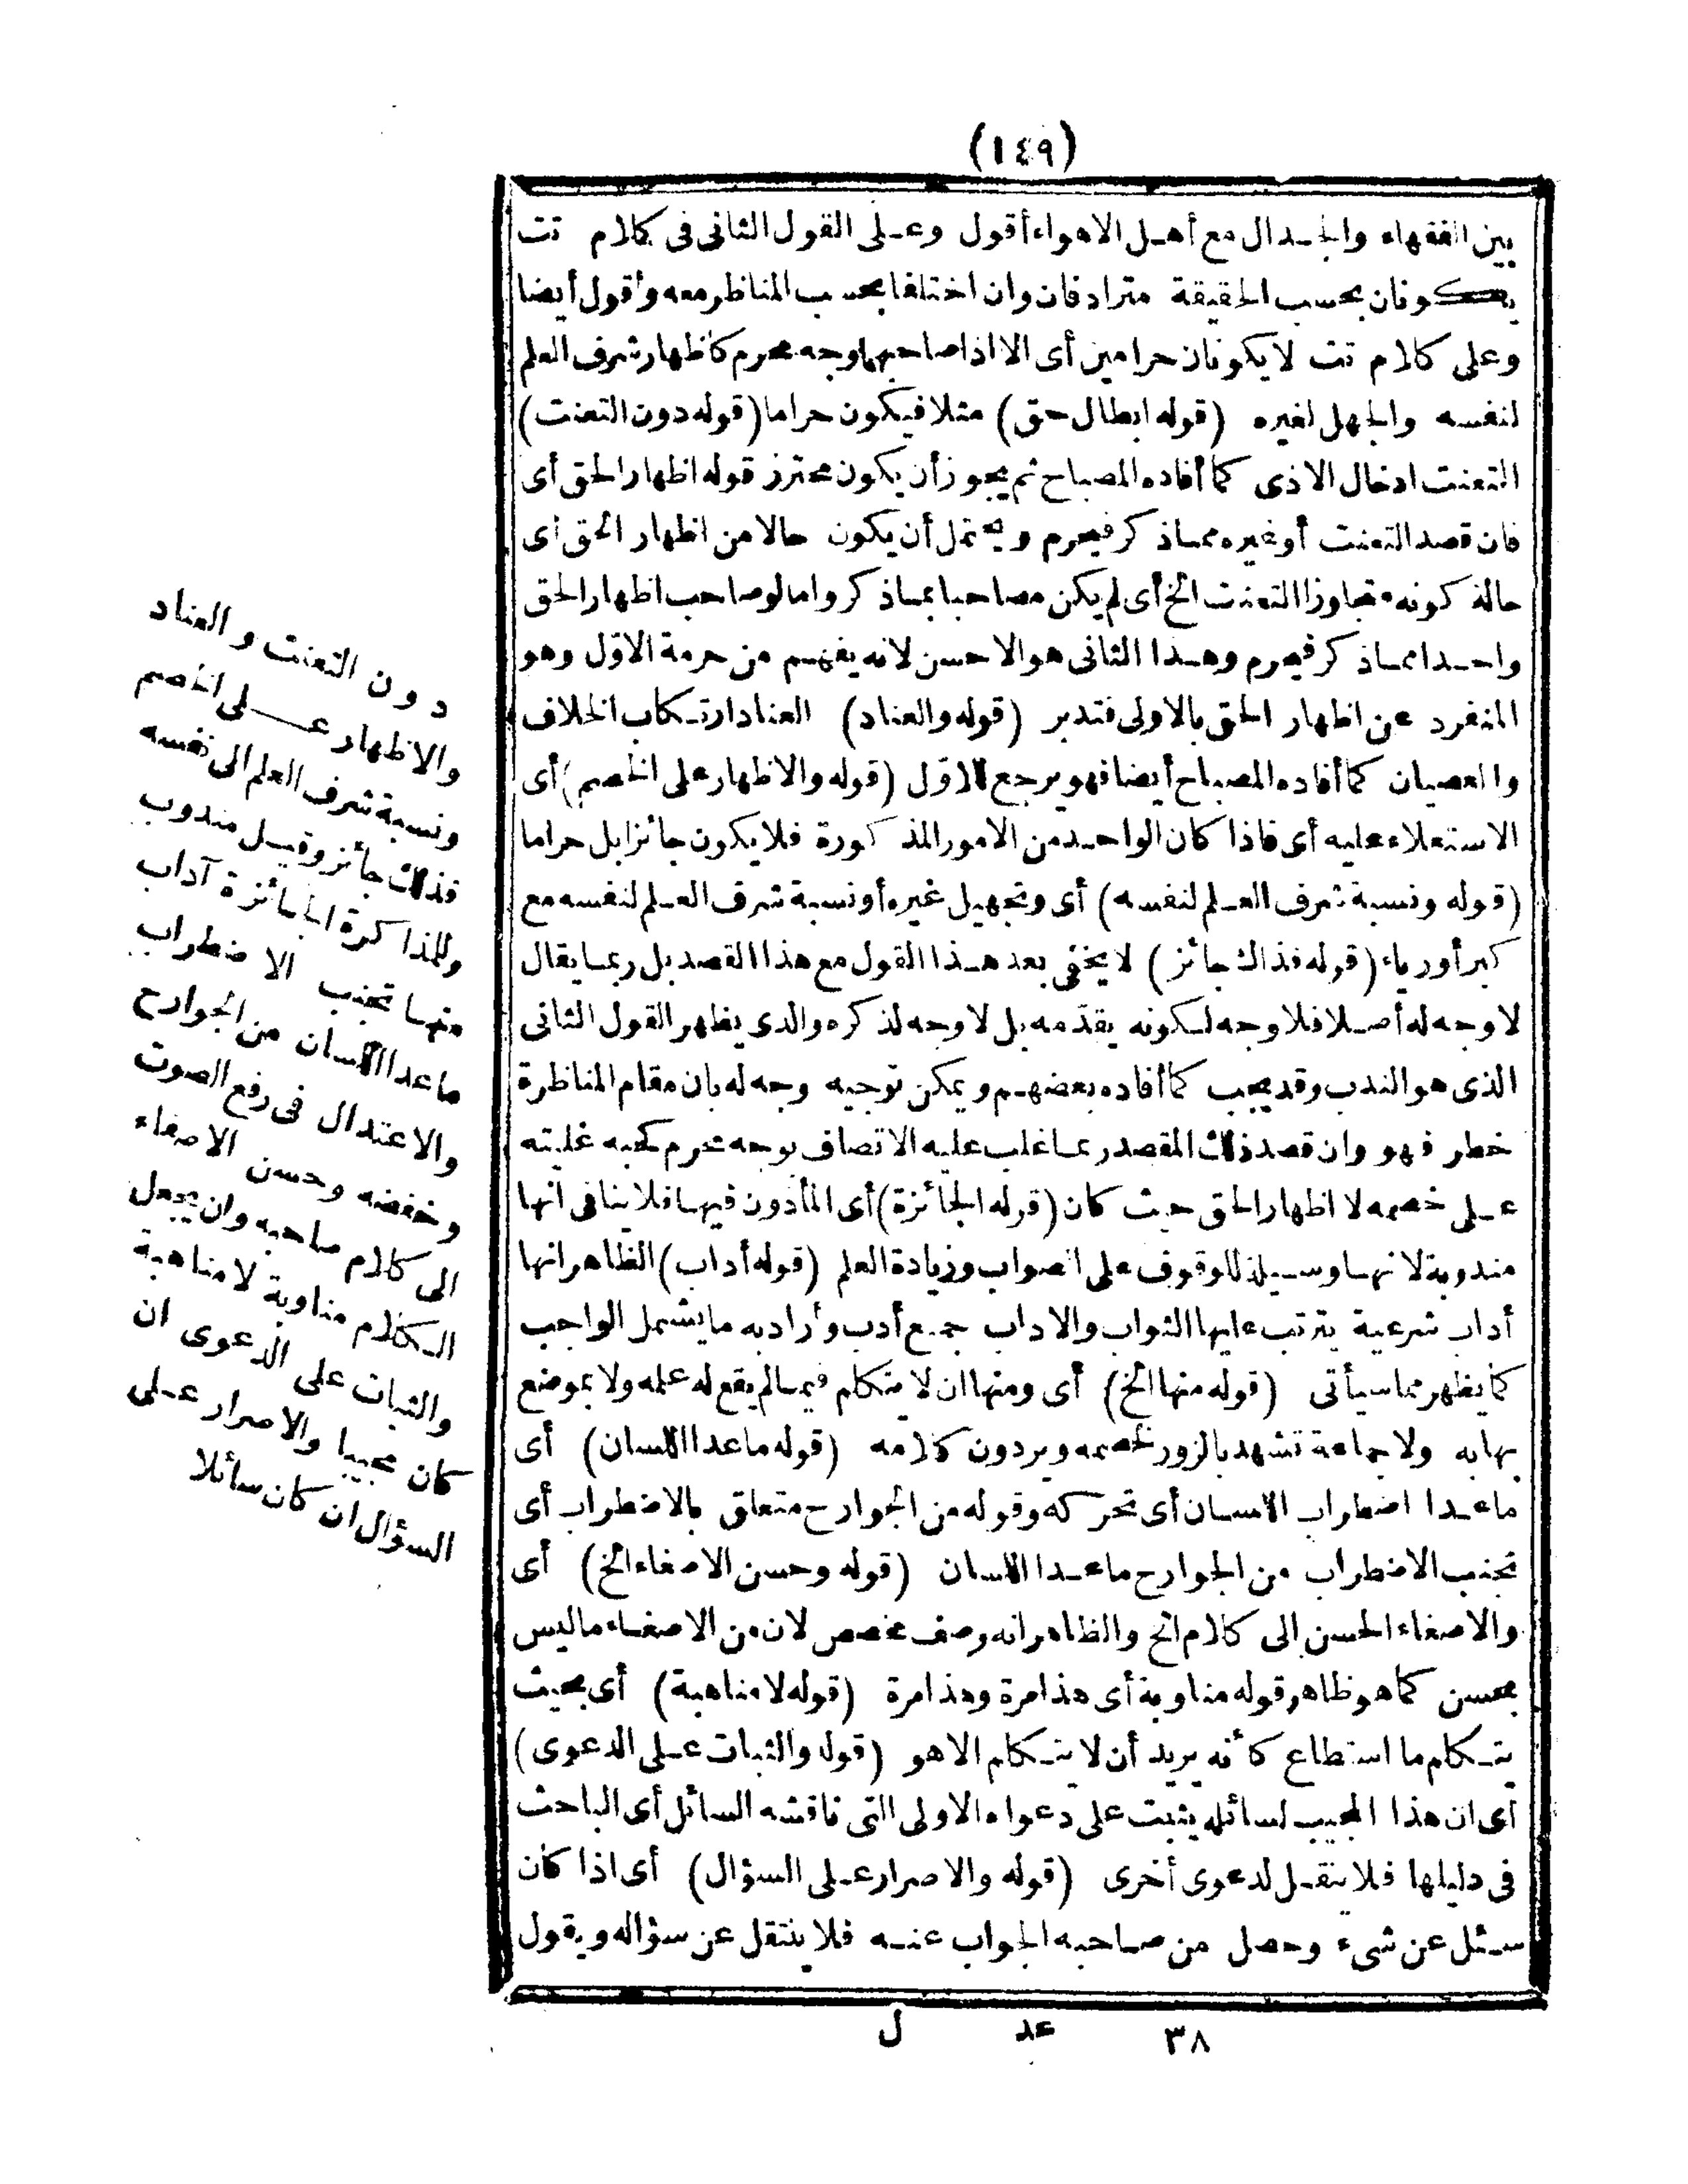 (١٤٩)
بين الفقهاء والجدال مع أهل الاهواء أقول وعلى القول الثانى فى كلام تت
يكونان بحسب الحقيقة مترادفان وان اختلفا بحسب المناظر معه وأقول أيضا
وعلى كلام تت لا يكونان حرامين أى الا اذا صاحبهما وجه محرم كاظهار شرف العلم
لنفسه والجهل لغيره (قوله ابطال حق) مثلا فيكون حراما (قوله دون التعنت)
التعنت ادخال الاذى كما أفاده المصباح ثم يجوز أن يكون محترز قوله اظهار الحق أى
فان قصد التعنت أو غيره مماذ كر فيحرم ويحتمل أن يكون حالا من اظهار الحق أى
حالة كونه متجاوزا التعنت الخ أى لم يكن مصاحبا بماذ كر وامالوصاحب اظهار الحق
واحدا مماذ كر فيحرم وهذا الثانى هو الاحسن لانه يفهم من حرمة الاوّل وهو
المنفرد عن اظهار الحق بالاولى فتدبر (قوله والعناد) العناد ارتكاب الخلاف
والعصيان كما أفاده المصباح أيضا فهو يرجع للاول (قوله والاظهار على الخصم) أى
الاستعلاء عليه أى فاذا كان الواحد من الامور المذ كورة فلا يكون جائزا بل حراما
(قوله ونسبة شرف العلم لنفسه) أى وتجهيل غيره أو نسبة شرف العلم لنفسه مع
كبر أو رياء (قوله فذالك جائز) لا يخفى بعد هذا القول مع هذا القصد بل ربما يقال
لا وجه له أصلا فلا وجه لكونه يقدّمه بل لا وجه لذ كره والذى يظهر القول الثانى
الذى هو الندب وقد يجب كما أفاده بعضهم ويمكن توجيه وجه له بان مقام المناظرة
خطر فهو وان قصد ذلك المقصد ربما غلب عليه الاتصاف بوجه محرم كحبه غلبته
على خصمه لا اظهار الحق حيث كان (قوله الجائزة) أى المأذون فيها فلا ينافى انها
مندوبة لانها وسيلة للوقوف على الصواب وزيادة العلم (قوله أداب) الظاهر انها
أداب شرعية يترتب عليها الثواب والاداب جمع أدب وأراد به ما يشمل الواجب
كما يظهر مما سيأتى (قوله منها الخ) أى ومنها ان لا يتكلم فيما لم يقع له علمه ولا بموضع
يهابه ولا جماعة تشهد بالزور لخصمه ويردون كلامه (قوله ماعدا اللسان) أى
ماعدا اضطراب اللسان أى تحركه وقوله من الجوارح متعلق بالاضطراب أى
تجنب الاضطراب من الجوارح ماعدا اللسان (قوله وحسن الاصغاء الخ) أى
والاصغاء الحسن الى كلام الخ والظاهر انه وصف مخصص لان من الاصغاء ما ليس
بحسن كما هو ظاهر قوله مناوبة أى هذا مرة وهذا مرة (قوله لا مناهبة) أى بحيث
يتكلم ما استطاع كأنه يريد أن لا يتكلم الا هو (قوله والثبات على الدعوى)
أى ان هذا المجيب لسائله يثبت على دعواه الاولى التى ناقشه السائل أى الباحث
فى دليلها فلا ينتقل لدعوى أخرى (قوله والاصرار على السؤال) أى اذا كان
سئل عن شىء وحصل من صاحبه الجواب عنه فلا ينتقل عن سؤاله ويقول
دون التعنت والعناد
والاظهار على الخصم
ونسبة شرف العلم الى نفسه
فذلك جائز وقيل مندوب
وللمذا كرة الجائزة آداب
منها تجنب الاضطراب
ماعدا اللسان من الجوارح
والاعتدال فى رفع الصوت
وخفضه وحسن الاصغاء
الى كلام صاحبه وان يجعل
الكلام مناوبة لا مناهبة
والثبات على الدعوى ان
كان مجيبا والاصرار على
السؤال ان كان سائلا
٣٨ عد ل